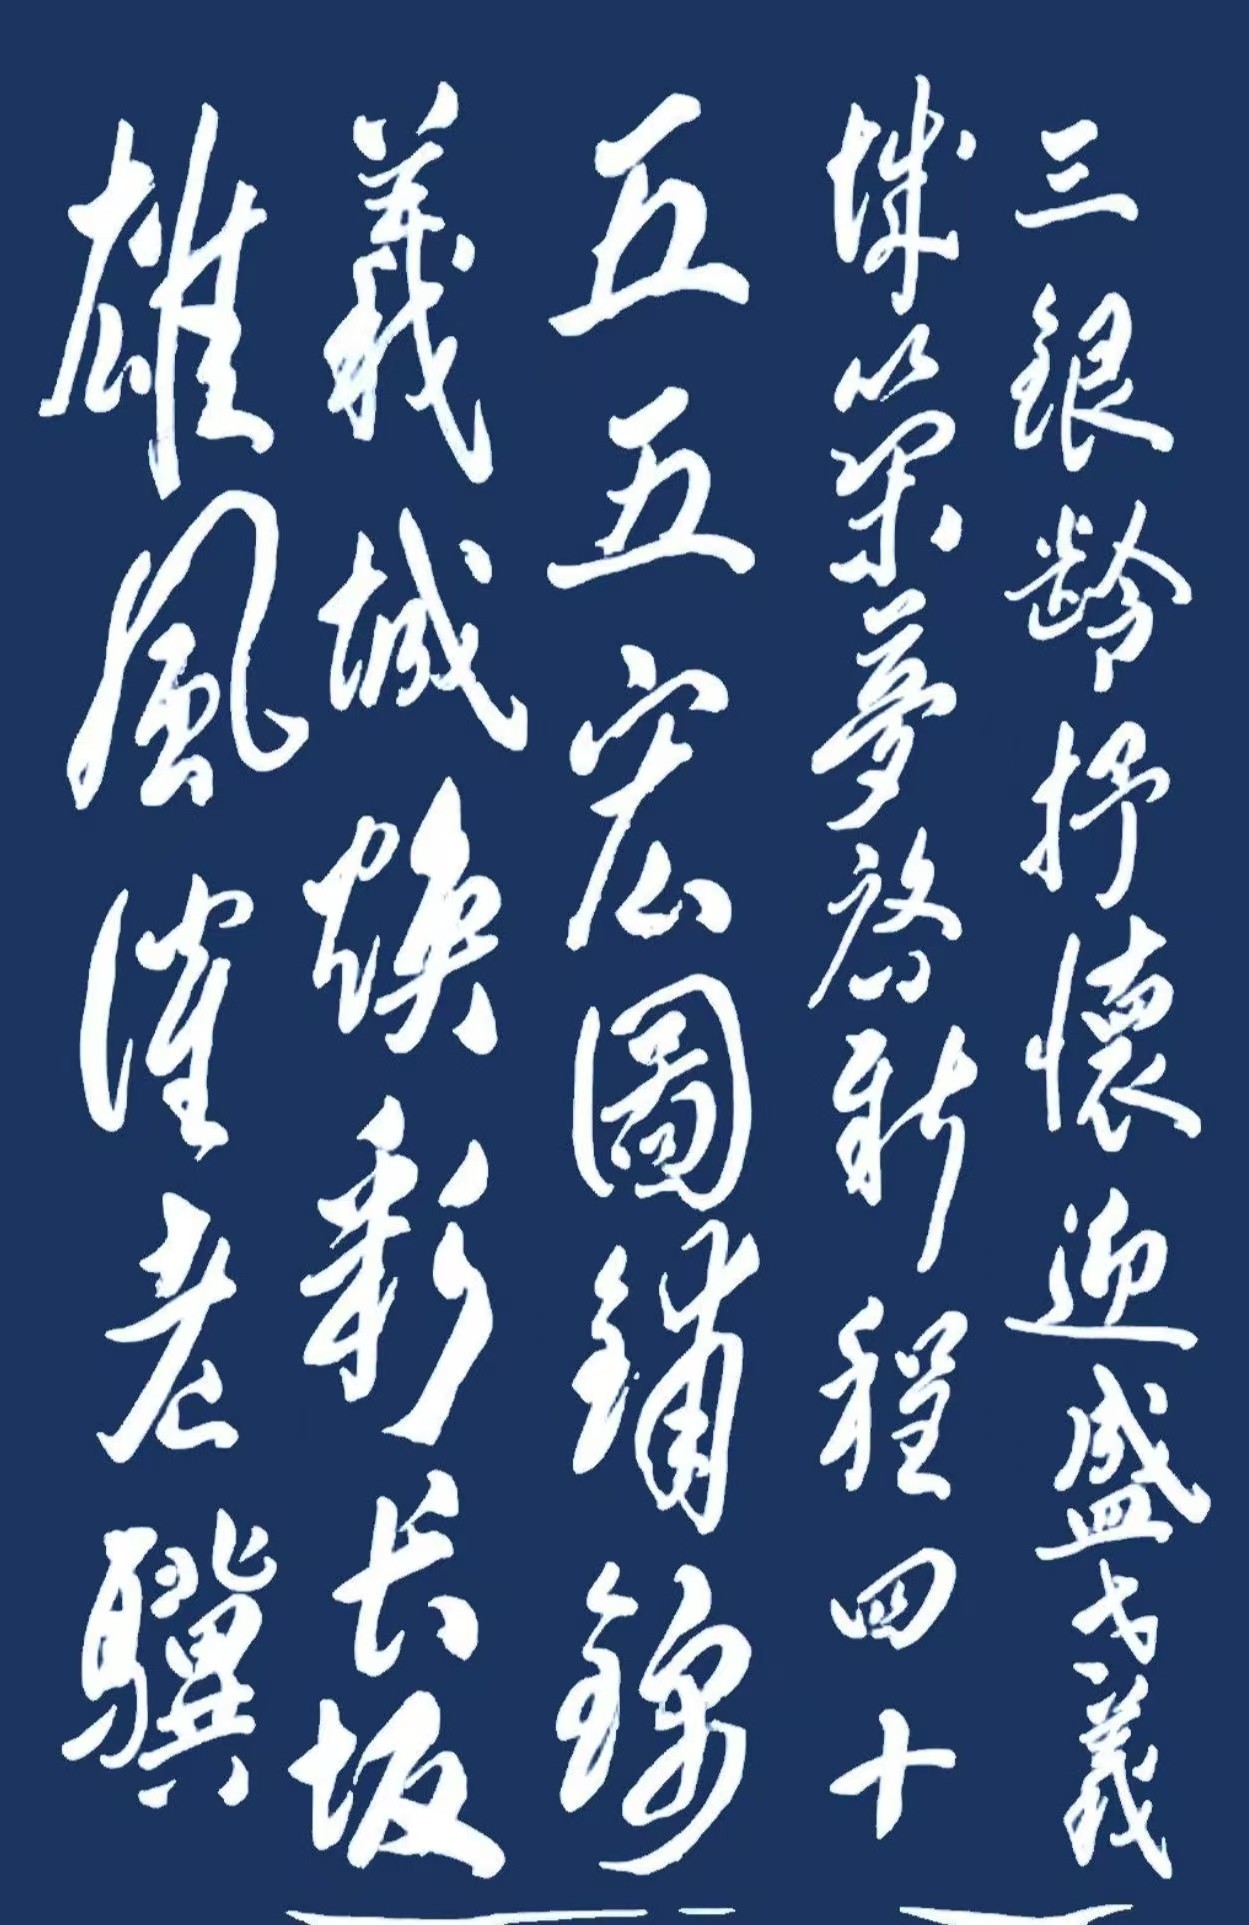 三銀齡抒懷迎盛世義
城築夢啓新程四十
五五宏圖鋪錦
義城煥彩长坂
雄風催老驥